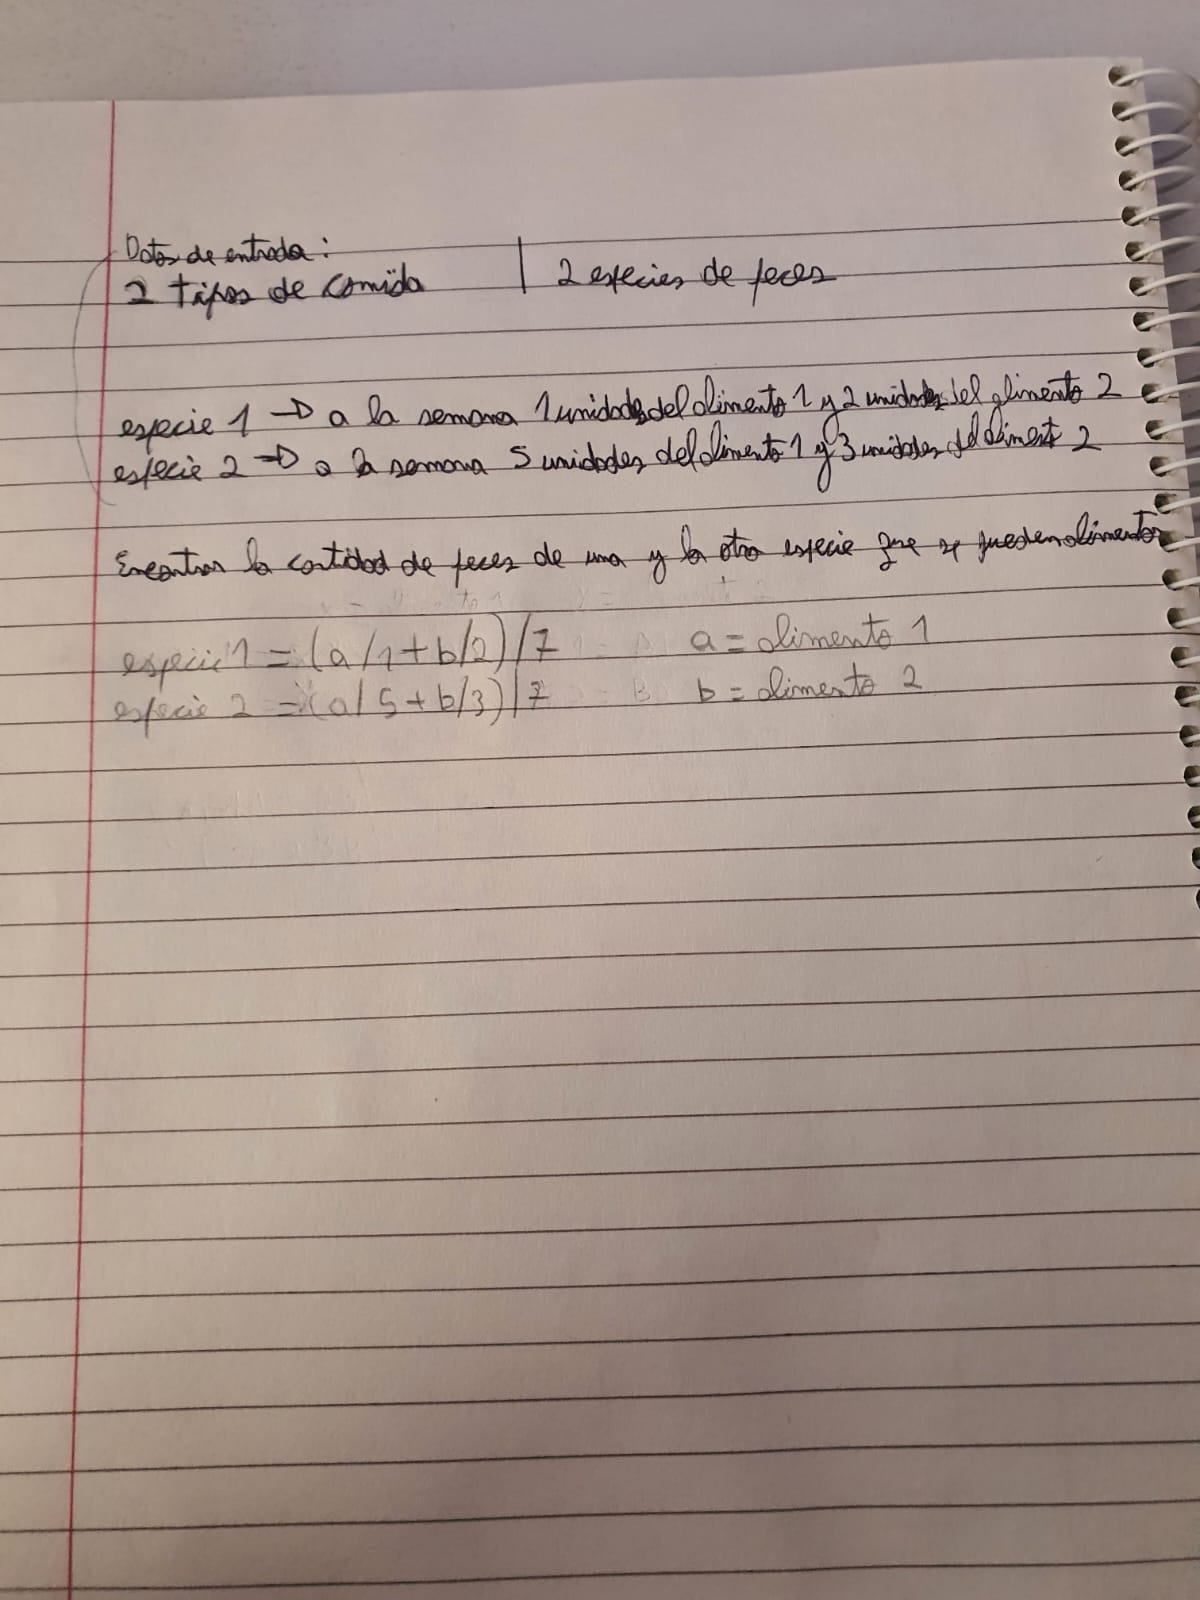 Datos de entrada:
2 tipos de comida | 2 especies de peces
especie 1 → a la semana 1 unidades del alimento 1 y 2 unidades del alimento 2
especie 2 → a la semana 5 unidades del alimento 1 y 3 unidades del aliment 2
Encontrar la cantidad de peces de una y la otra especie que se pueden alimentar
especie 1 = (a/1+b/2)/7 a = alimento 1
especie 2 = (a/5+b/3)/7 b = alimento 2